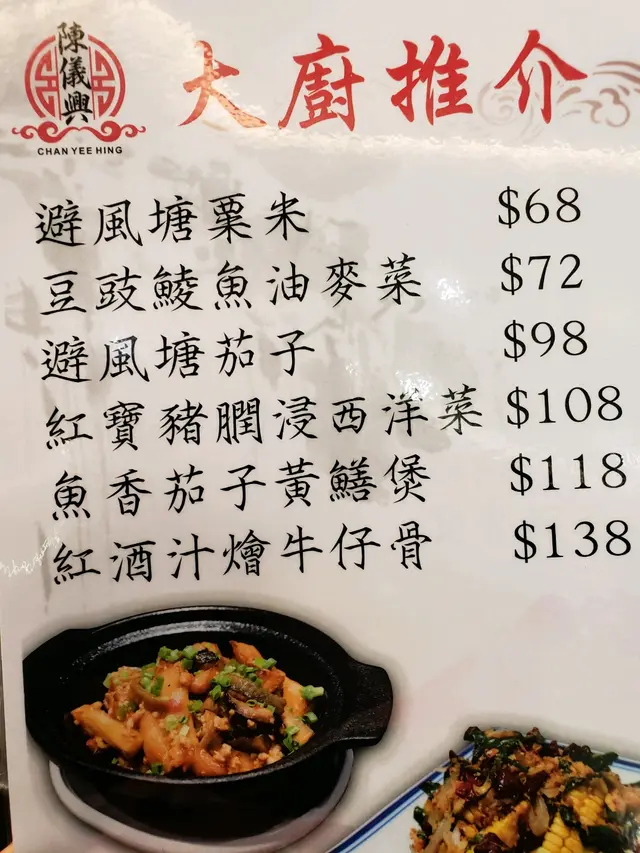 陳儀興
CHAN YEE HING
大廚推介
避風塘粟米 $68
豆豉鯪魚油麥菜 $72
避風塘茄子 $98
紅寶豬膶浸西洋菜 $108
魚香茄子黃鱔煲 $118
紅酒汁燴牛仔骨 $138